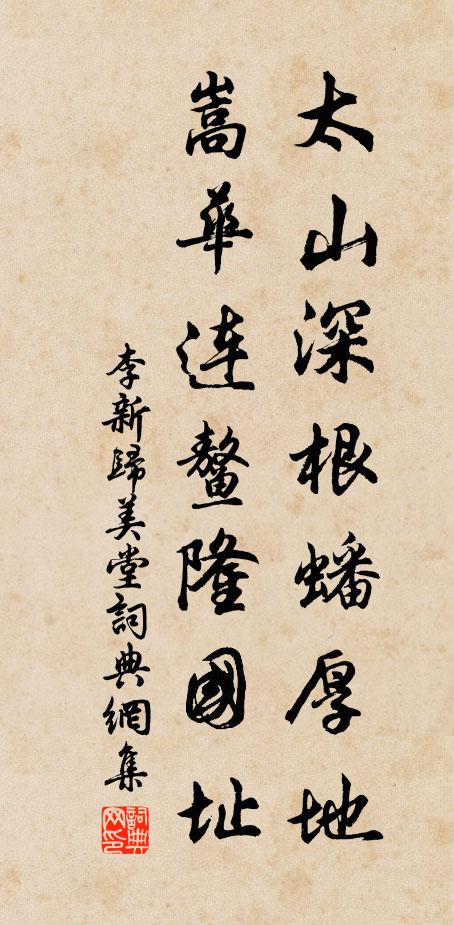 太山深根蟠厚地
嵩華連鼇隆國址
李新歸美堂詞典網集
詞典网印